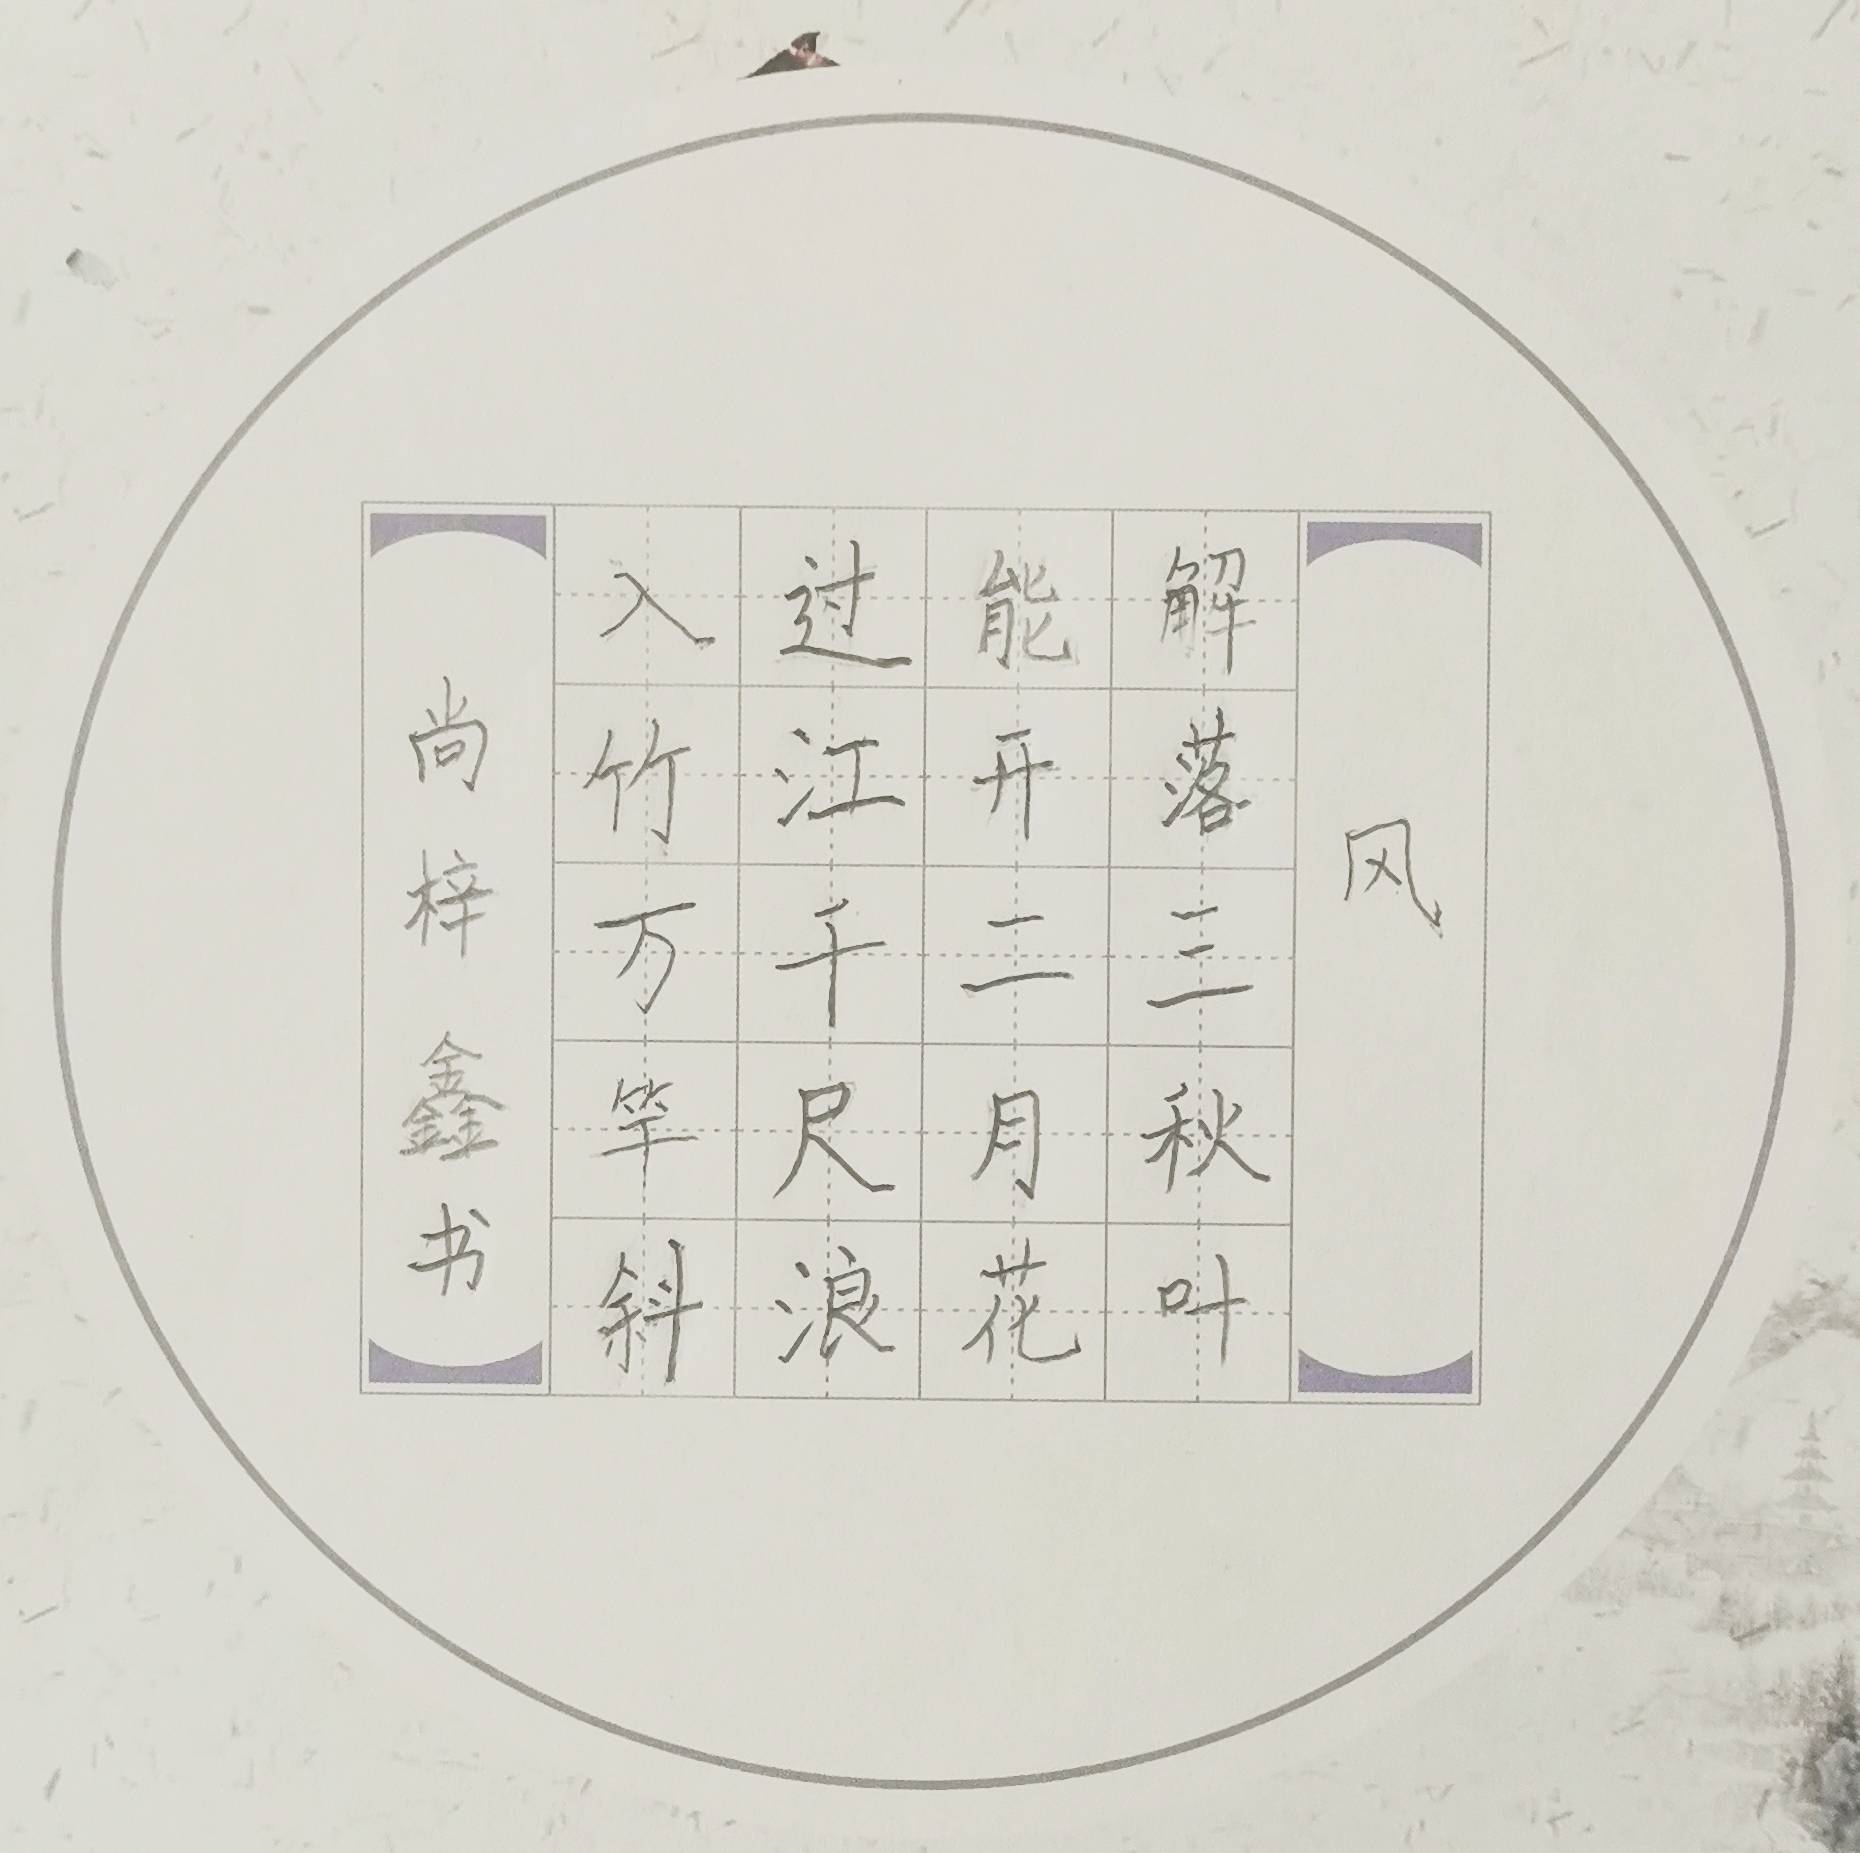 风
解落三秋叶
能开二月花
过江千尺浪
入竹万竿斜
尚梓鑫书